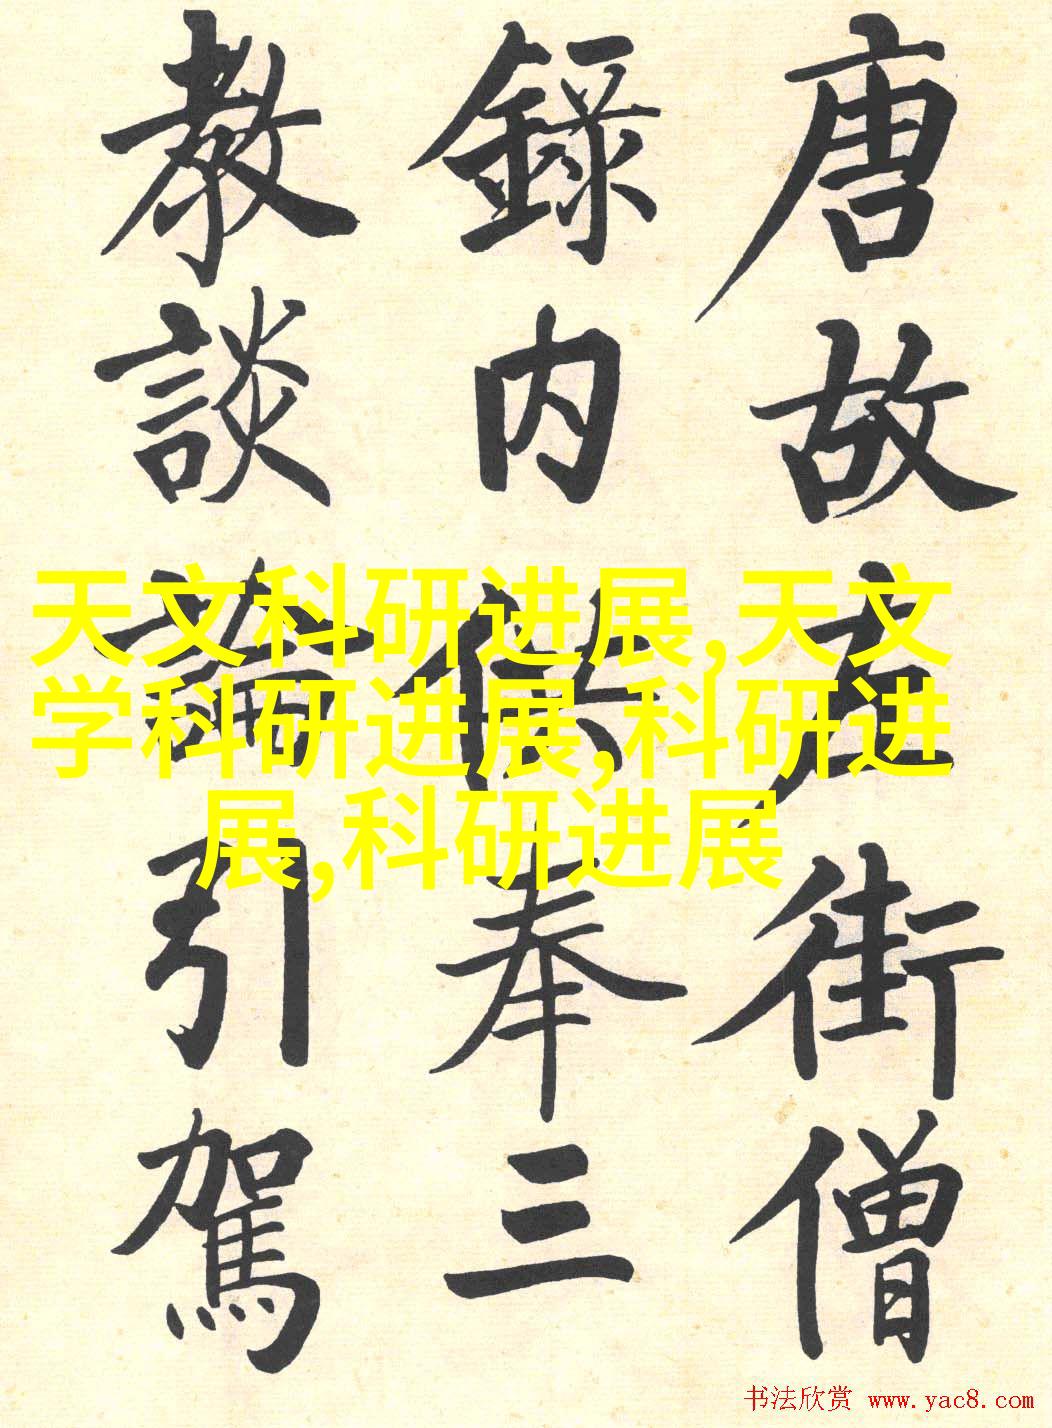 唐故左街僧
錄内供奉三
教談論引駕
天文科研进展,天文
学科研进展,科研进
展,科研进展
书法欣赏 www.yac8.com